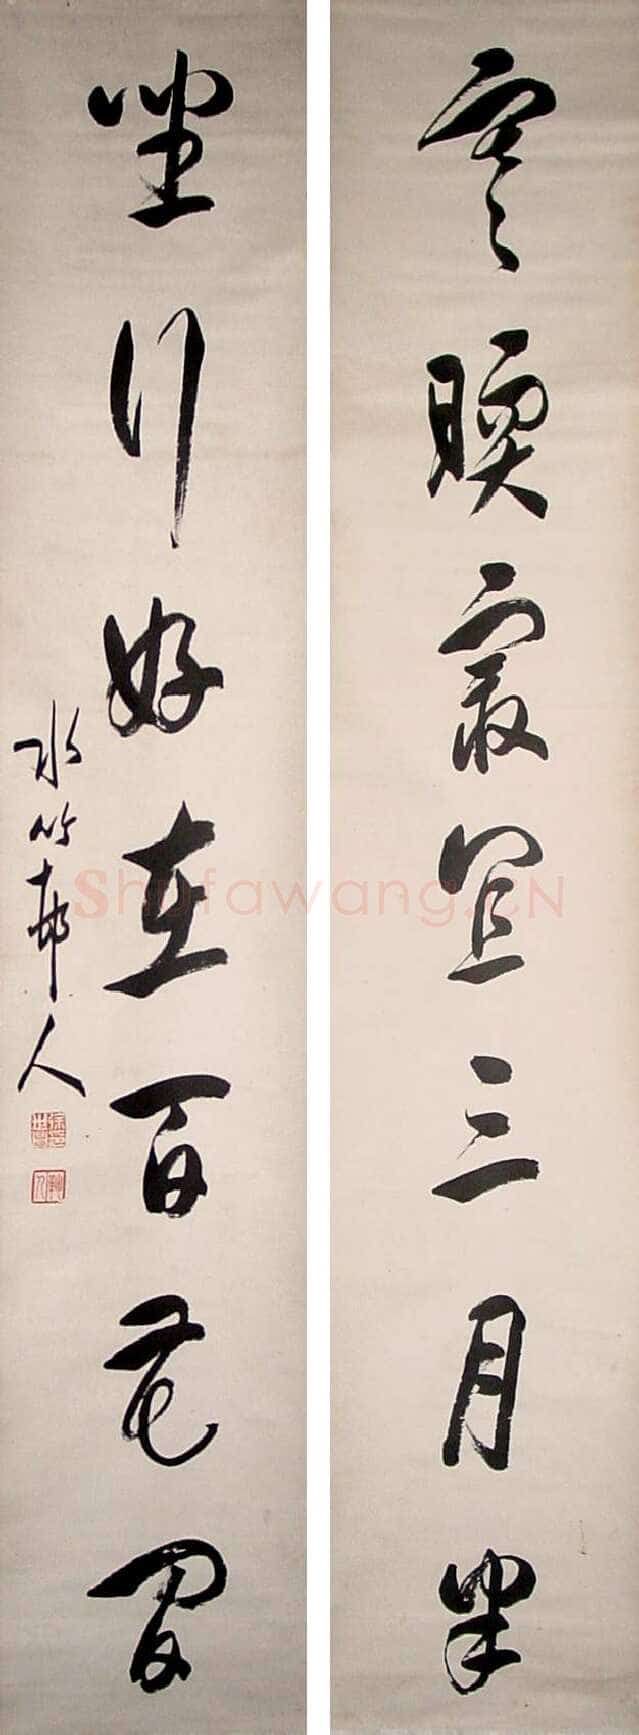 寒暖最宜三月半
坐行好在百花間
水竹邨人
Shufawang.CN